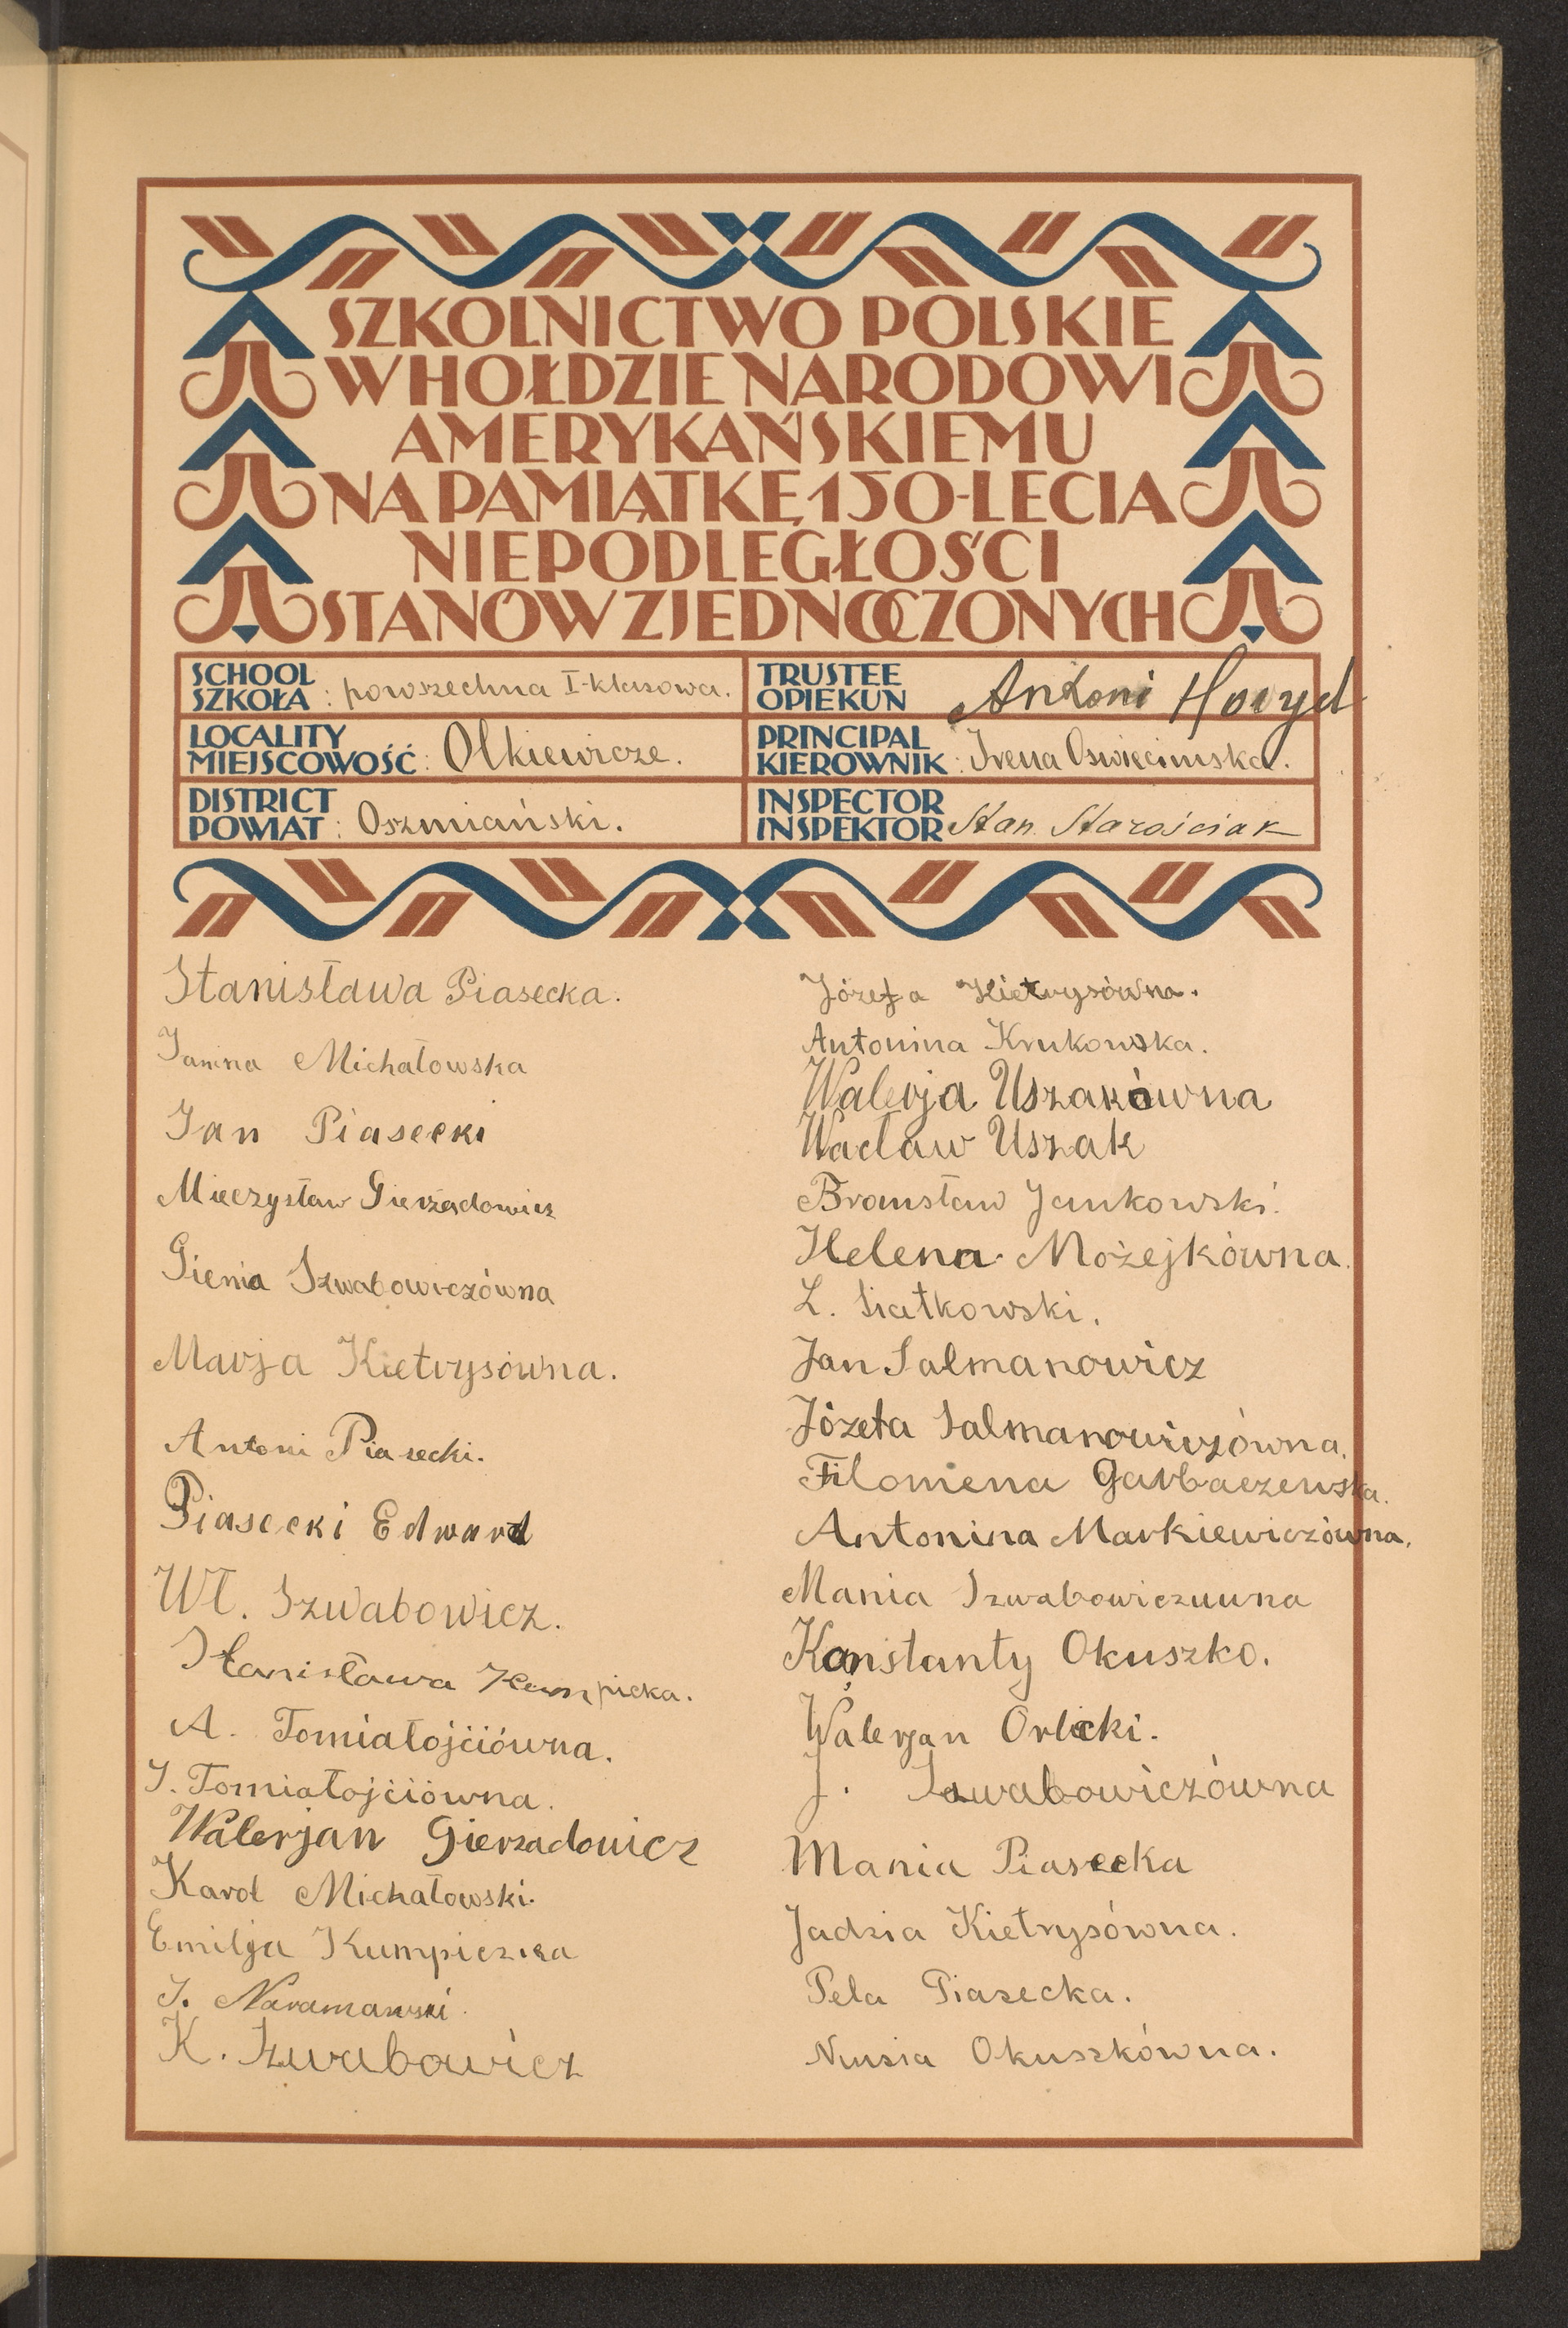 SZKOLNICTWO POLSKIE
W HOŁDZIE NARODOWI
AMERYKAŃSKIEMU
NA PAMIĄTKĘ 150-LECIA
NIEPODLEGŁOŚCI
STANÓW ZJEDNOCZONYCH
SCHOOL
SZKOŁA : powszechna I-klasowa.
TRUSTEE
OPIEKUN Antoni
LOCALITY
MIEJSCOWOŚĆ : Olkiewicze.
PRINCIPAL
KIEROWNIK : Irena Oswięcimska.
DISTRICT
POWIAT : Oszmiański.
INSPECTOR
INSPEKTOR Stan. Starościak
Stanisława Piasecka.
Janina Michałowska
Jan Piasecki
Mieczysław Gierzadowicz
Gienia Szwabowiczówna
Marja Kietrysówna.
Antoni Piasecki.
Piasecki Edward
Wł. Szwabowicz.
Stanisława Kumpicka.
A. Tomiałojćiówna.
J. Tomiałojćiówna.
Walerjan Gierzadowicz
Karol Michałowski.
Emilja Kumpiczka
J. Naramowski.
K. Szwabowicz
Józefa Kietrysówna.
Antonina Krukowska.
Walerja Uszakówna
Wacław Uszak
Bronisław Jankowski.
Helena Możejkówna.
L. Siatkowski.
Jan Salmanowicz
Józefa Salmanowiczówna.
Filomena Garbaczewska.
Antonina Markiewiczówna.
Mania Szwabowiczuwna
Konstanty Okuszko.
Walerjan Orlicki.
J. Szwabowiczówna
Mania Piasecka
Jadzia Kietrysówna.
Pela Piasecka.
Niusia Okuszkówna.